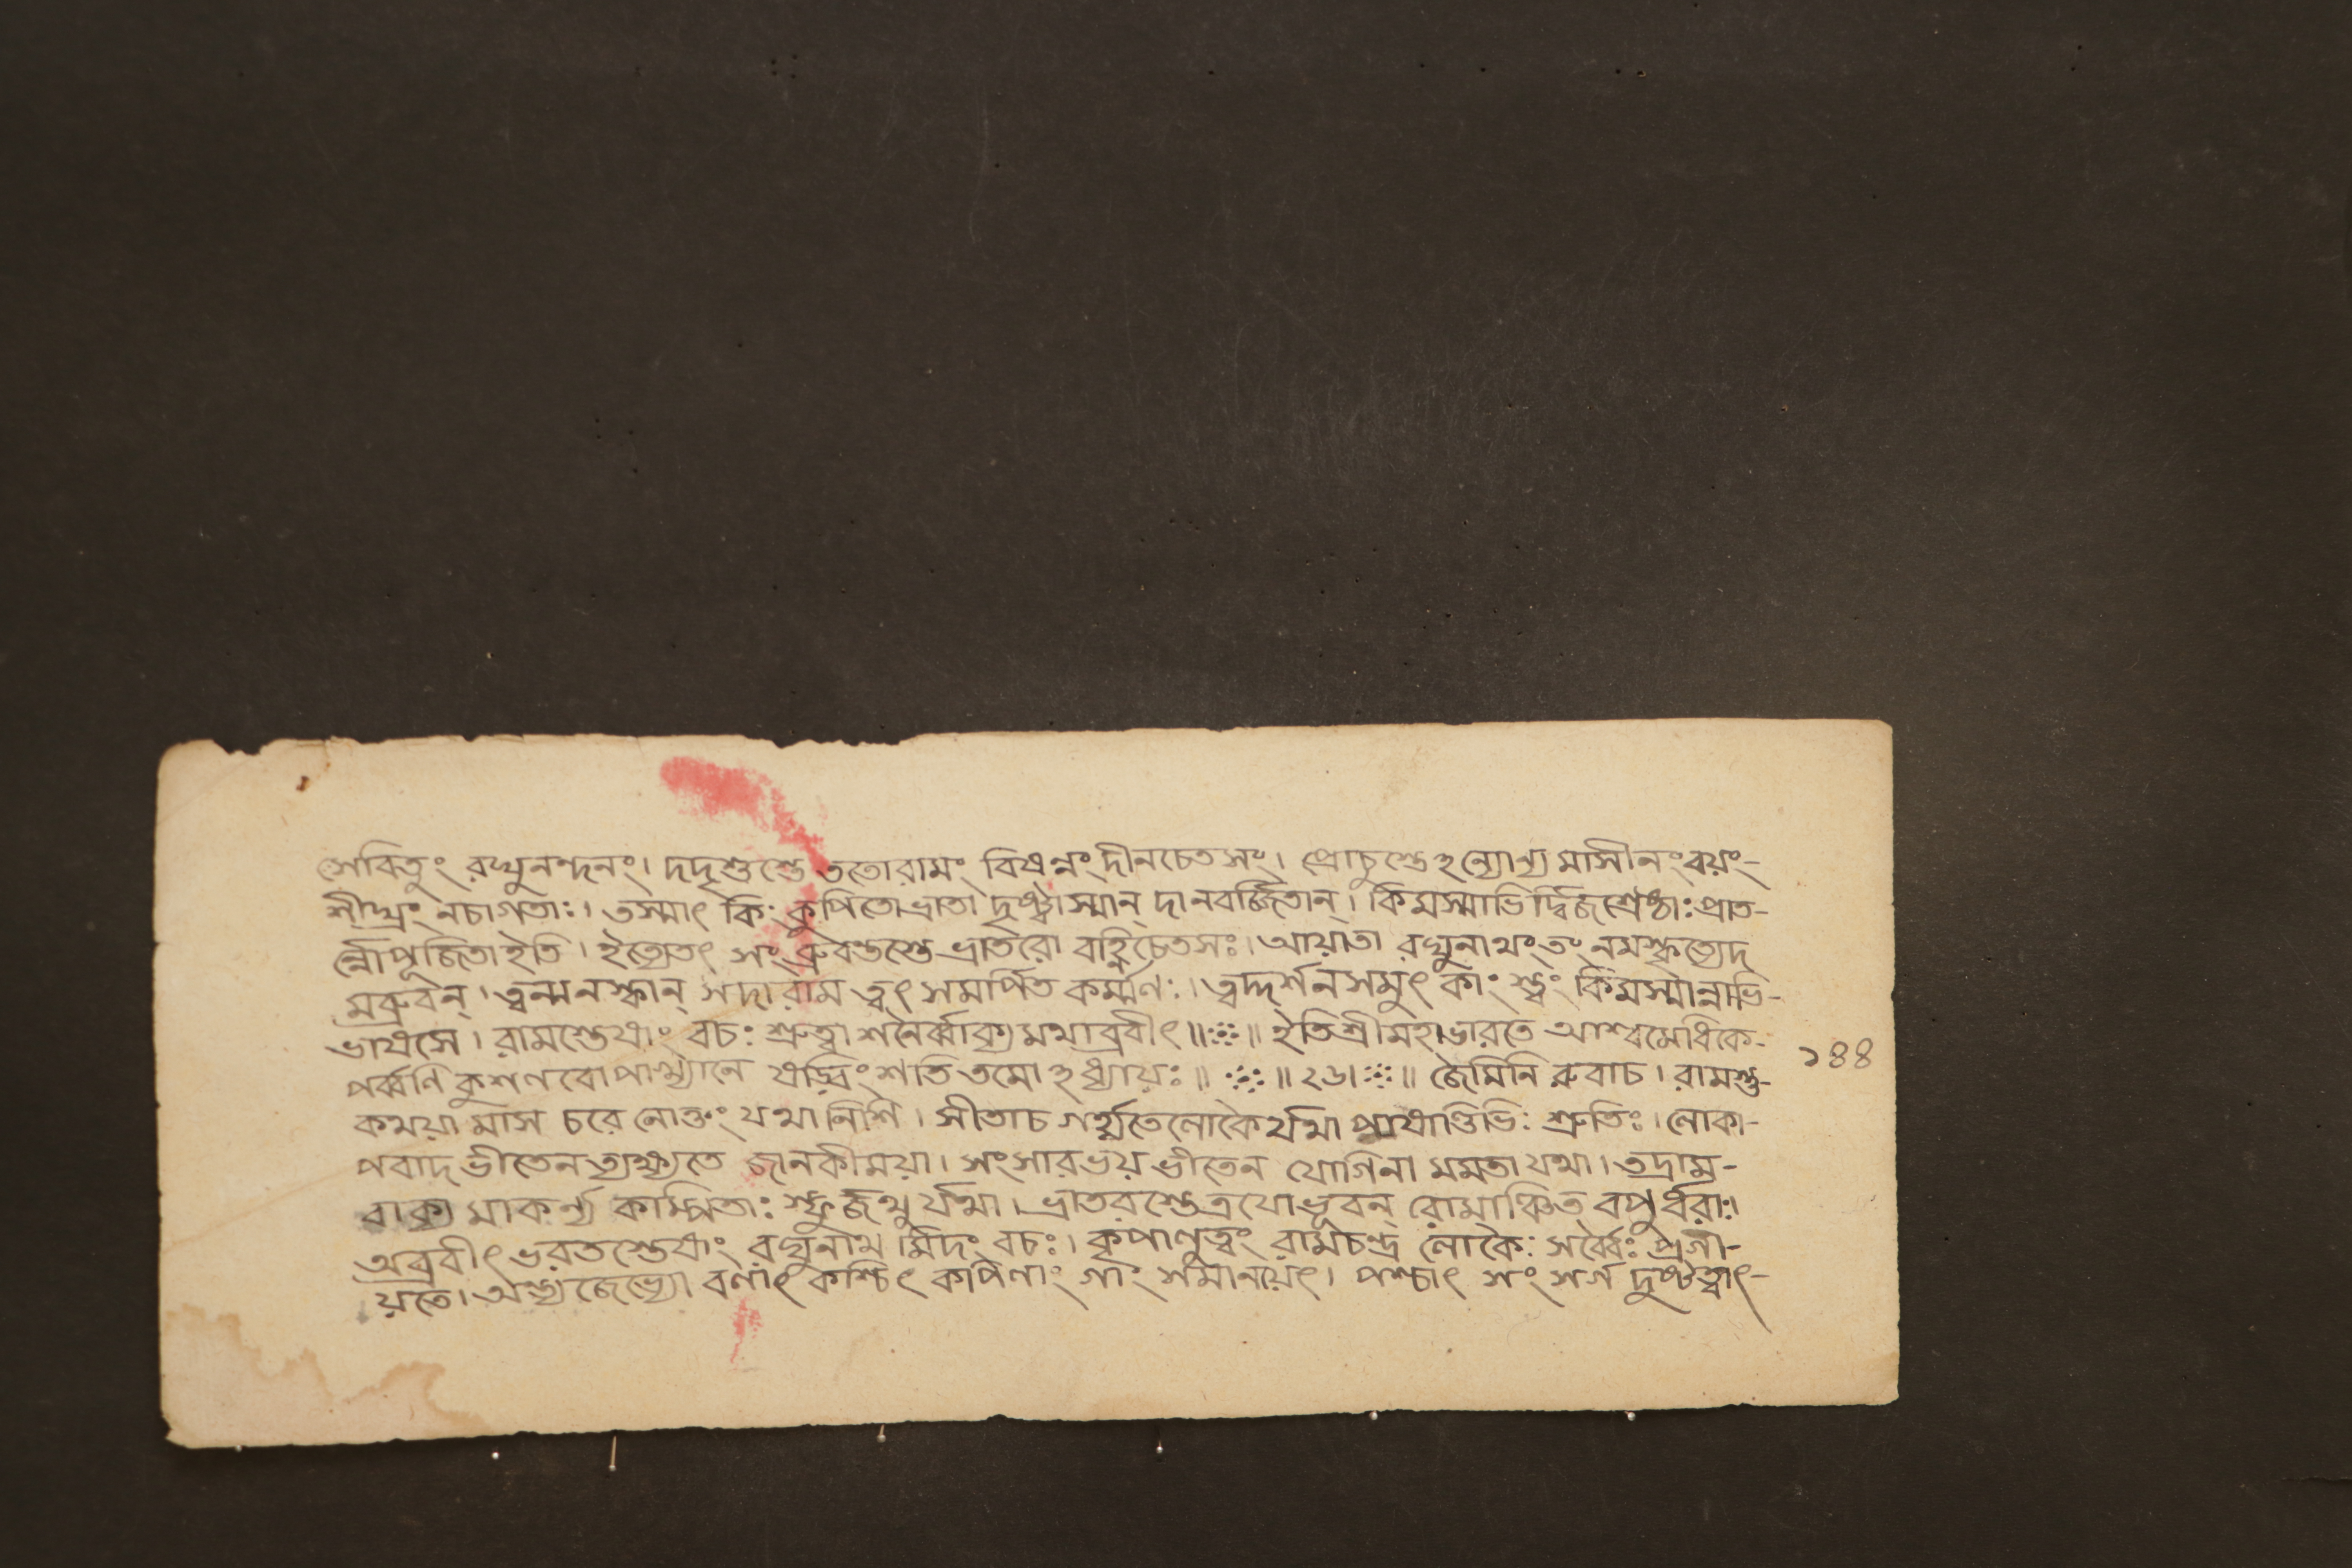 সেবিতুং রঘুনন্দনং। দদৃশুস্তে ততোরামং বিষন্নং দীনচেতসং। প্রোচুস্তেঽন্যোন্য মাসীনং বয়ং-
শীঘ্রং নচাগতাঃ। তস্মাৎ কিং কুপিতোভ্রাতা দৃষ্ট্বাস্মান্ দানবর্জ্জিতান্। কিমস্মাভি র্দ্বিজশ্রেষ্ঠাঃ প্রাত-
র্ন্নোপূজিতাইতি। ইত্যেতৎ সং ব্রুবন্তস্তে ভ্রাতরো বহ্নিচেতসঃ। আয়াতা রঘুনাথং তং নমস্কৃত্যেদ
মব্রুবন্। ত্বন্মনস্কান্ সদা রাম ত্বৎ সমর্পিত কর্ম্মণঃ। ত্বদ্দর্শনসমুৎ কাং স্ত্বং কিমস্মান্নাভি-
ভাষসে। রামস্তেষাং বচঃ শ্রুত্বা শনৈর্ব্বাক্য মথাব্রবীৎ॥ ॥ ইতিশ্রীমহাভারতে আশ্বমেধিকে-
পর্ব্বণি কুশলবোপাখ্যানে ষড্বিংশতি তমোঽধ্যায়ঃ॥ ॥২৬। ॥ জৈমিনি রুবাচ। রামস্তু-
১৪৪
কথয়া মাস চরে নোক্তং যথা নিশি। সীতাচ গর্হ্যতে লোকৈর্যথা পাষাণ্ডিভিঃ শ্রুতিঃ। লোকা-
পবাদ ভীতেন ত্যক্ষ্যতে জানকীময়া। সংসারভয় ভীতেন যোগিনা মমতা যথা। তদ্রাম-
বাক্য মাকর্ণ্য কাম্পিতাঃ স্ফুর্জথু র্যথা। ভ্রাতরস্তেত্রযোভূবন্ রোমাঞ্চিত বপুর্ধরাঃ।
অব্রবীৎ ভরতস্তেষাং রঘুনাথ মিদং বচঃ। কৃপালুত্বং রামচন্দ্র লোকৈঃ সর্ব্বৈঃ প্রগী-
য়তে। অন্ত্যজেভ্যো বলাৎ কশ্চিৎ কপিলাং গাং সমানয়েৎ। পশ্চাৎ সং সর্গ দুষ্টত্বাৎ-